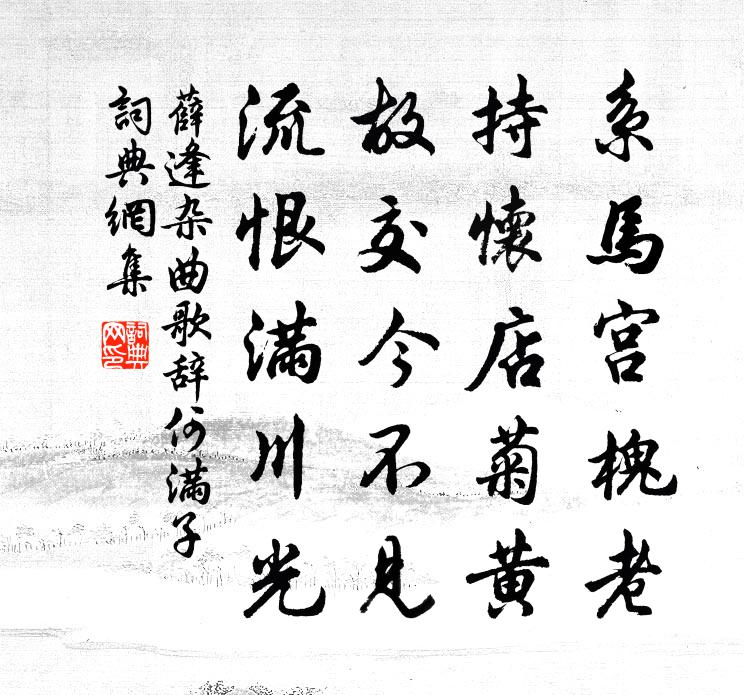 系馬宮槐老
持懷店菊黃
故交今不見
流恨滿川光
薛逢杂曲歌辞何滿子
詞典網集
詞典網印